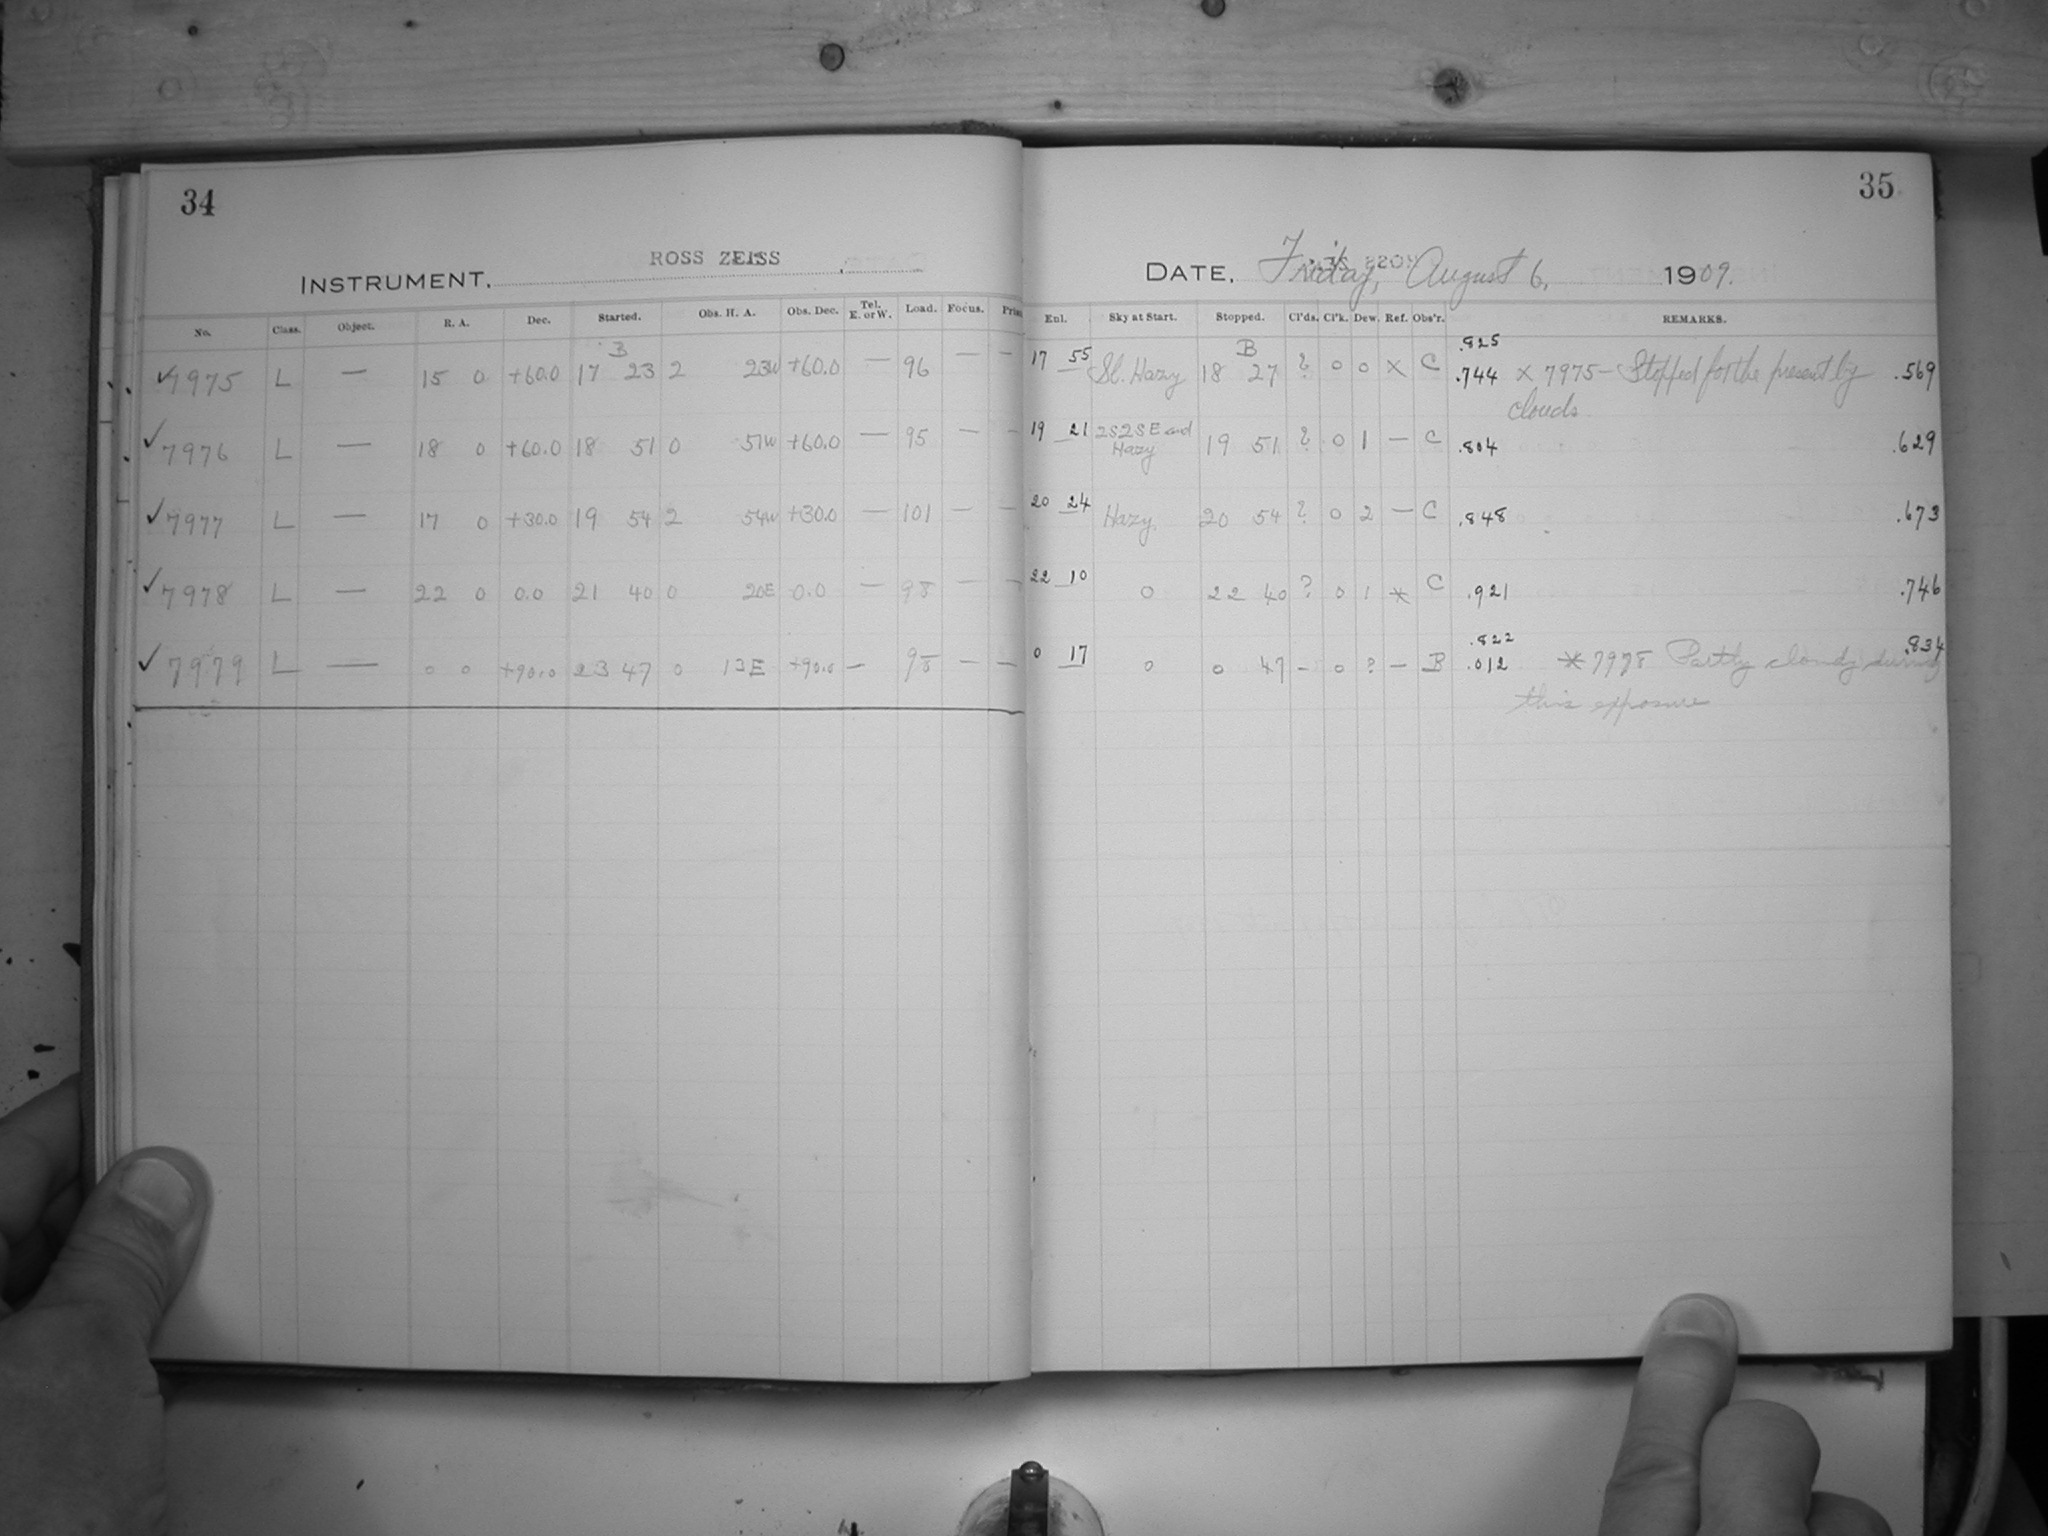 34
INSTRUMENT. ROSS ZEISS
No. Class. Object. R. A. Dec. Started. Obs. H. A. Obs. Dec. Tel. E. or W. Load. Focus.
✓7975 L — 15 0 +60.0 B 17 23 2 23W +60.0 — 96 — —
✓7976 L — 18 0 +60.0 18 51 0 51W +60.0 — 95 — —
✓7977 L — 17 0 +30.0 19 54 2 54W +30.0 — 101 — —
✓7978 L — 22 0 0.0 21 40 0 20E 0.0 — 98 — —
✓7979 L — 0 0 +90.0 23 47 0 13E +90.0 — 98 — —
35
DATE. Friday, August 6, 1909.
Enl. Sky at Start. Stopped. Cl'ds. Cl'k. Dew. Ref. Obs'r. REMARKS.
17 55 Sl. Hazy B 18 27 ? 0 0 x C .825
.744 x 7975 — Stopped for the present by .569
clouds
19 21 2S2SE and Hazy 19 51 ? 0 1 — C .804 .629
20 24 Hazy 20 54 ? 0 2 — C .848 .673
22 10 0 22 40 ? 0 1 * C .921 .746
0 17 0 0 47 – 0 ? – B .822 .834
.012 * 7978 Partly cloudy during
this exposure